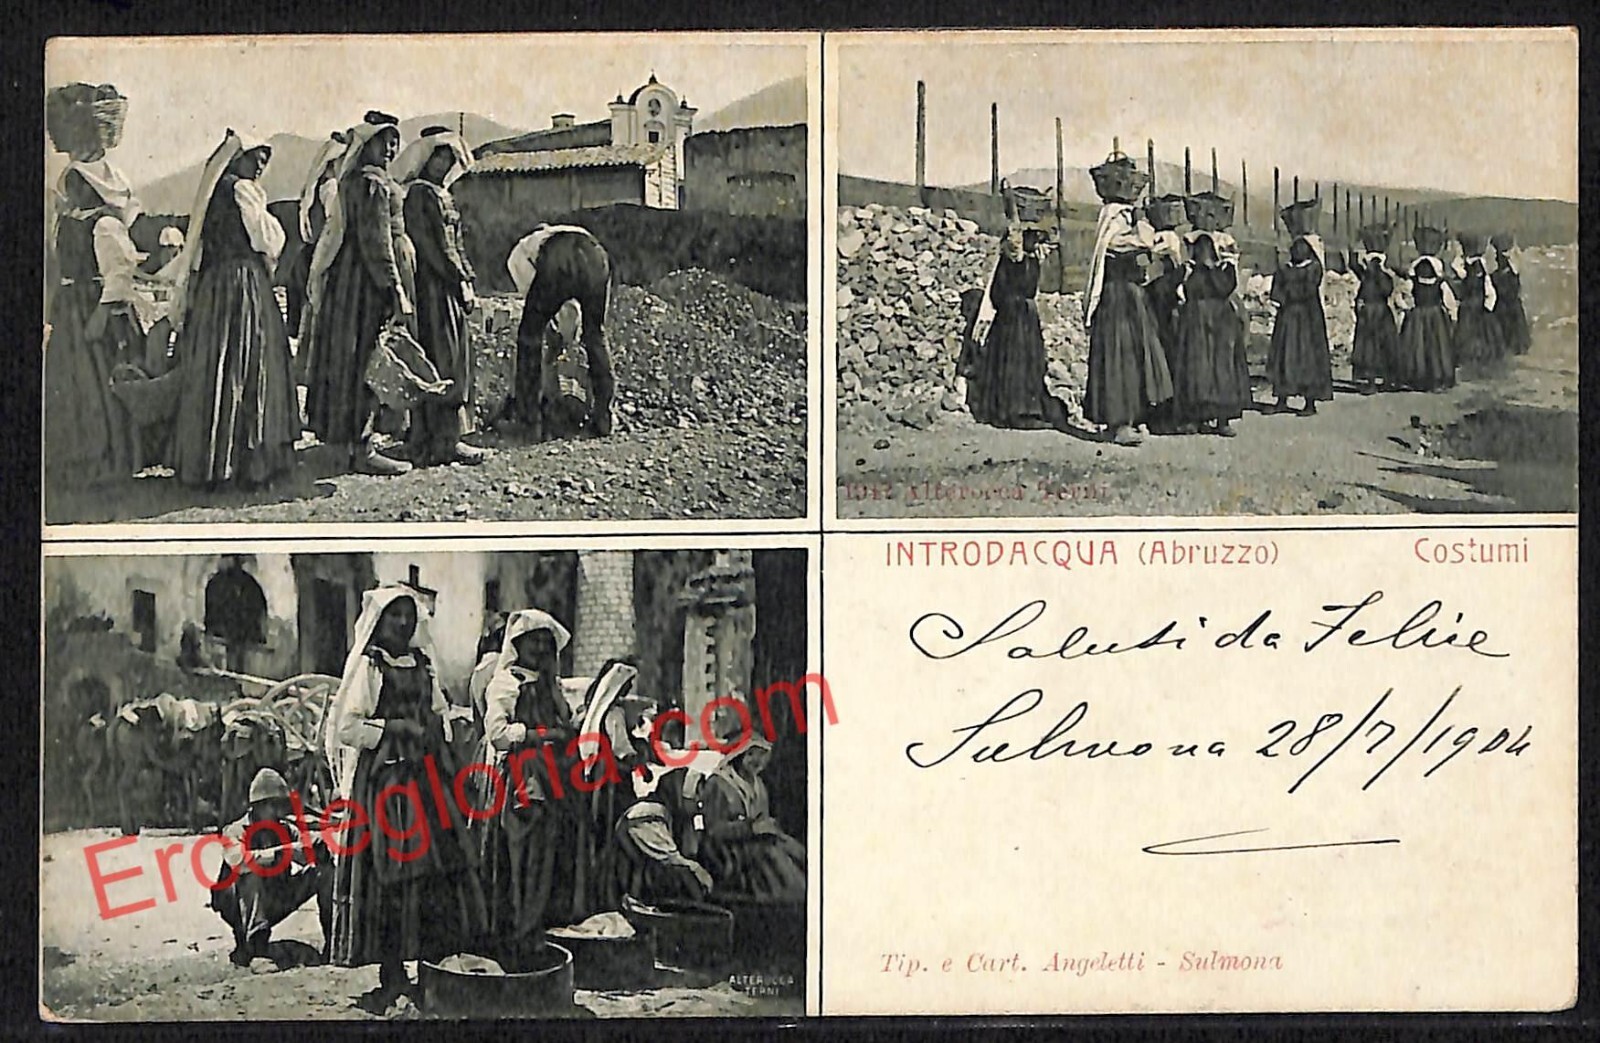 1942 Alterocca Terni
INTRODACQUA (Abruzzo) Costumi
Saluti da Felice
Sulmona 28/7/1904
Ercolegloria.com
ALTEROCCA
TERNI
Tip. e Cart. Angeletti - Sulmona